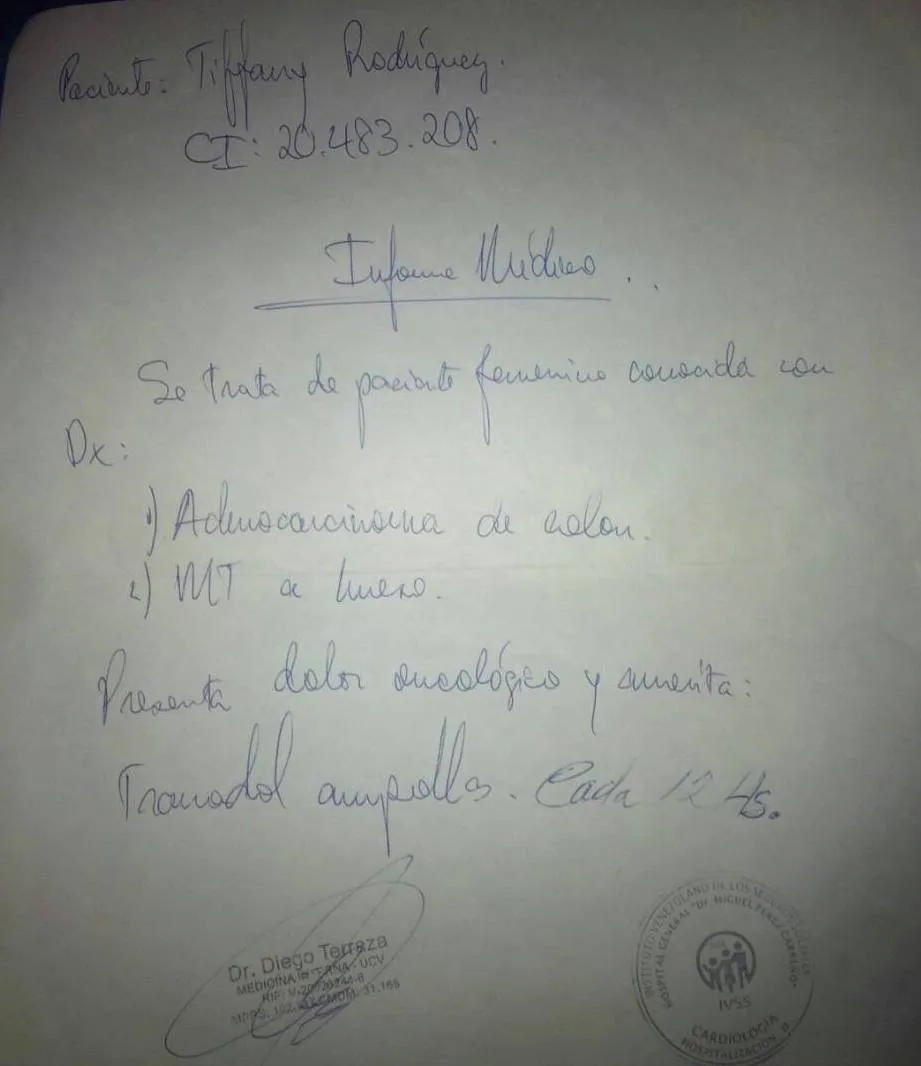 Paciente: Tiffany Rodríguez.
CI: 20.483.208.
Informe Médico.
Se trata de paciente femenino conocida con
Dx:
1) Adenocarcinoma de colon.
2) MT a hueso.
Presenta dolor oncológico y amerita:
Tramadol ampollas. Cada 12 Hs.
Dr. Diego Terraza
MEDICINA INTERNA - UCV
RIF: V-
31.165
INSTITUTO VENEZOLANO DE LOS SEGUROS SOCIALES
HOSPITAL GENERAL "Dr. MIGUEL PEREZ CARREÑO"
IVSS
CARDIOLOGIA
HOSPITALIZACION